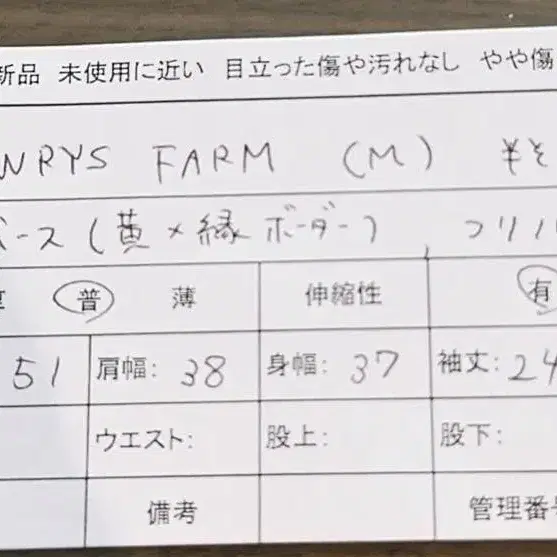 新品 未使用に近い 目立った傷や汚れなし やや傷
NRYS FARM (M)
ース(黄×縁ボーダー)
普 薄 伸縮性 有
51 肩幅: 38 身幅: 37 袖丈: 24
ウエスト: 股上: 股下:
備考 管理番号